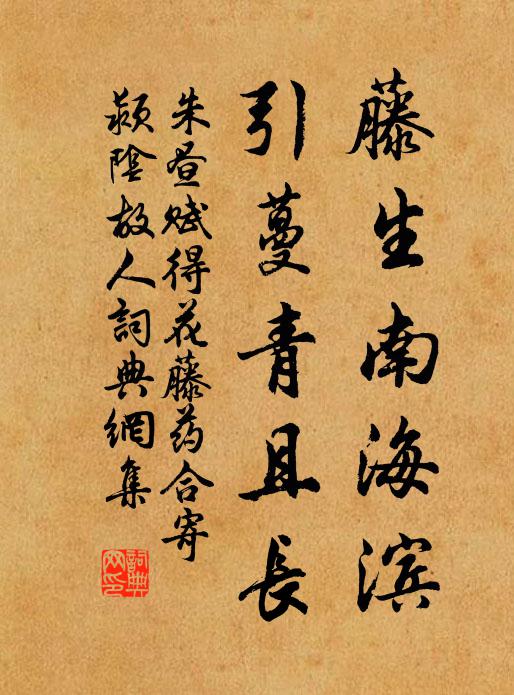 藤生南海滨
引蔓青且长
朱昼赋得花藤药合寄
颍阴故人詞典網集
詞典网印